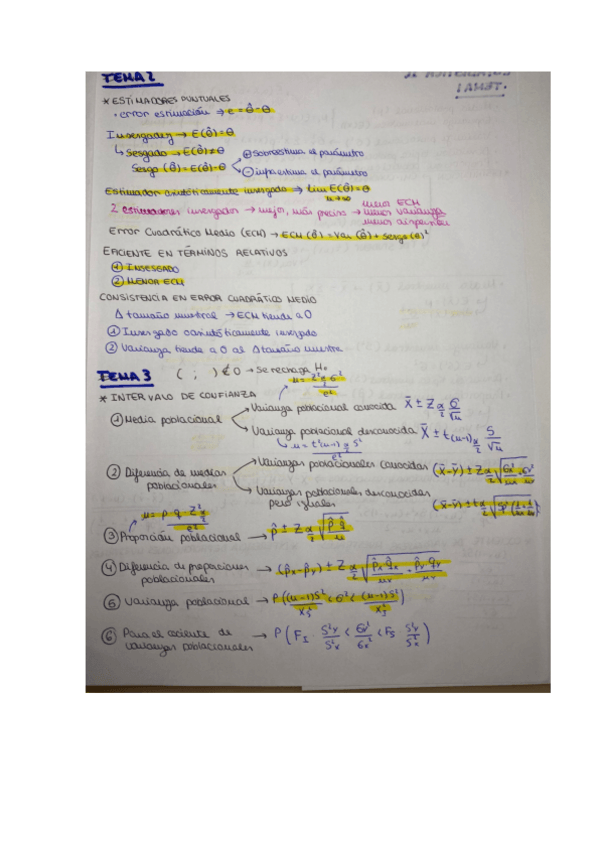 TEMA 2
* ESTIMADORES PUNTUALES
· error estimación ⇒ e = θ̂ - θ
Insesgadez → E(θ̂) = θ
↳ Sesgado → E(θ̂) ≠ θ
⊕ sobreestima el parámetro
Sesgo (θ̂) = E(θ̂) - θ
⊖ infraestima el parámetro
Estimador asintóticamente insesgado ⇒ lim E(θ̂) = θ
n→∞
2 estimadores insesgados → mejor, más preciso →
menor ECM
menor varianza
menor
Error Cuadrático Medio (ECM) → ECM (θ̂) = Var (θ̂) + sesgo (θ̂)²
EFICIENTE EN TÉRMINOS RELATIVOS
① INSESGADO
② MENOR ECM
CONSISTENCIA EN ERROR CUADRÁTICO MEDIO
Δ tamaño muestral → ECM tiende a 0
① Insesgado o asintóticamente insesgado
② Varianza tiende a 0 al Δ tamaño muestra
TEMA 3 ( ; ) ∉ 0 → Se rechaza H₀
* INTERVALO DE CONFIANZA
n = z² α/2 σ² / e²
① Media poblacional
Varianza poblacional conocida X̄ ± Z α/2 σ/√n
Varianza poblacional desconocida X̄ ± t(n-1) α/2 S/√n
n = t²(n-1) α/2 S² / e²
② Diferencia de medias poblacionales
Varianzas poblacionales conocidas (x̄-ȳ) ± Z α/2 √(σx²/nx + σy²/ny)
Varianzas poblacionales desconocidas
pero iguales
n = p · q · Z² α/2 / e²
③ Proporción poblacional → p̂ ± Z α/2 √(p̂ q̂ / n)
④ Diferencia de proporciones
poblacionales → (p̂x - p̂y) ± Z α/2 √(p̂x q̂x / nx + p̂y q̂y / ny)
⑤ Varianza poblacional → P
⑥ Para el cociente de
varianzas poblacionales → P